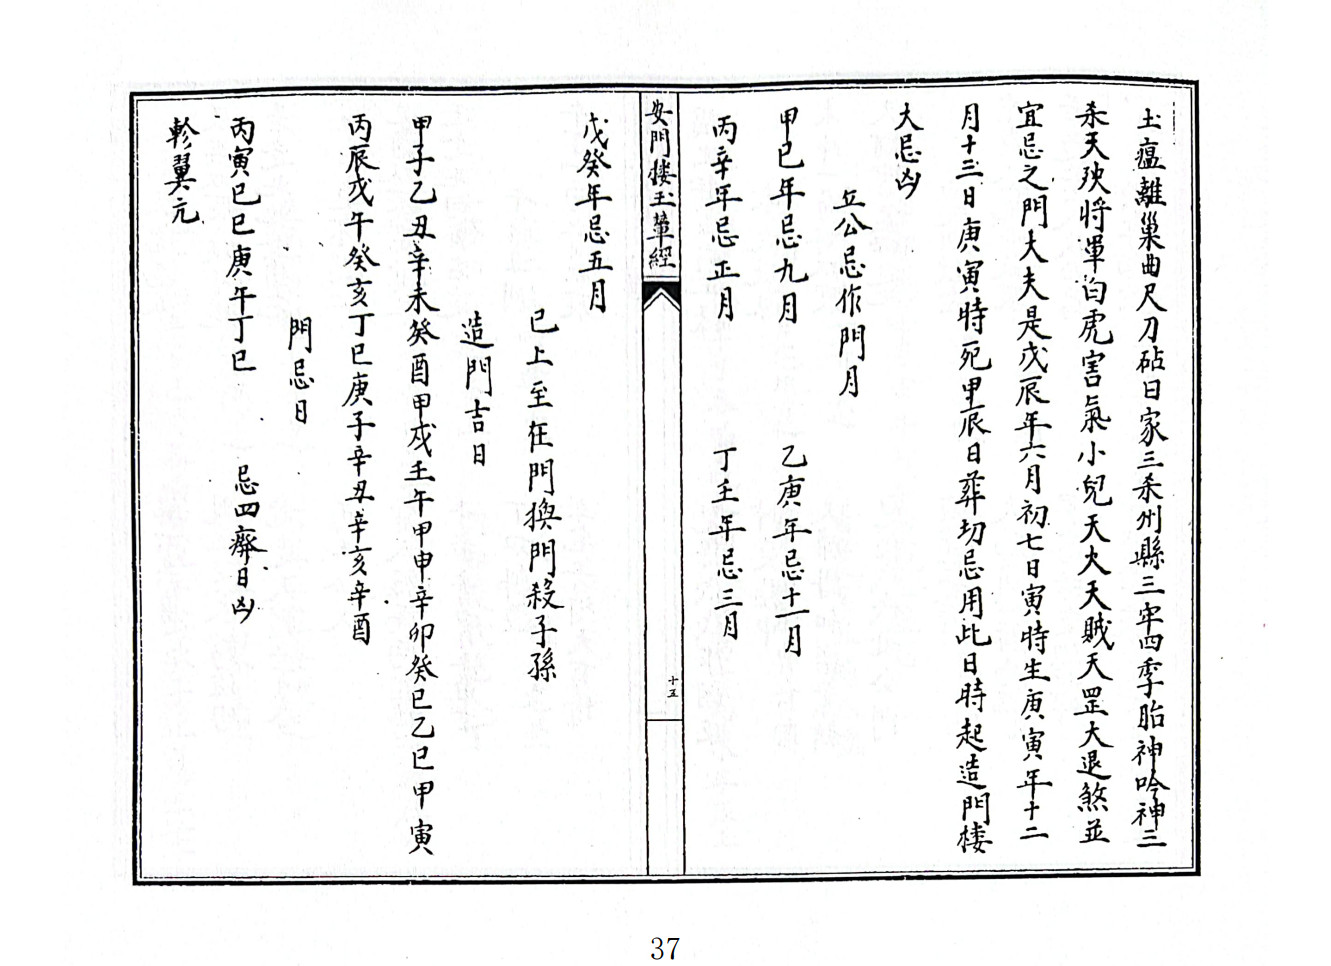 土瘟離巢曲尺刀砧日家三杀州縣三牢四季胎神吟神三
杀天殃將軍白虎害氣小兒天火天賊天罡大退煞並
宜忌之門大夫是戊辰年六月初七日寅時生庚寅年十二
月十三日庚寅時死甲辰日葬切忌用此日時起造門楼
大忌凶
丘公忌作門月
甲已年忌九月 乙庚年忌十一月
丙辛年忌正月 丁壬年忌三月
安門楼玉輦經
十五
戊癸年忌五月
已上至在門換門殺子孫
造門吉日
甲子乙丑辛未癸酉甲戌壬午甲申辛卯癸巳乙巳甲寅
丙辰戊午癸亥丁巳庚子辛丑辛亥辛酉
門忌日
丙寅巳巳庚午丁巳 忌四齋日凶
軫翼元
37